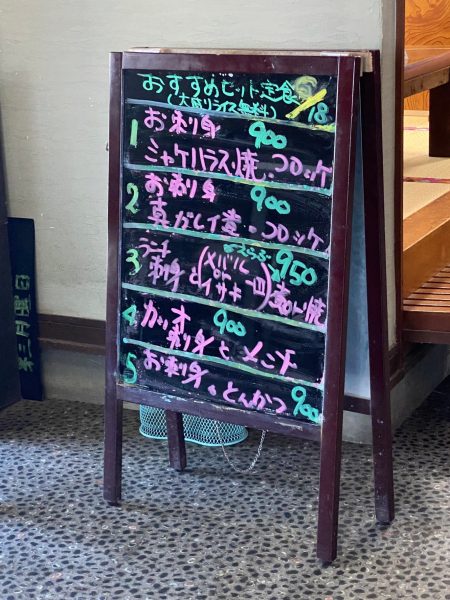 おすすめセット定食
(大盛りライス無料) 18
1 お刺身 900
ミニャケハラス焼・コロッケ
2 お刺身 900
真ガレイ煮・コロッケ
3 ランチ 950
刺身と(メバル イサキ) 煮or焼
4 カツオ 900
刺身とメンチ
5 お刺身、とんかつ 900
第三月曜日